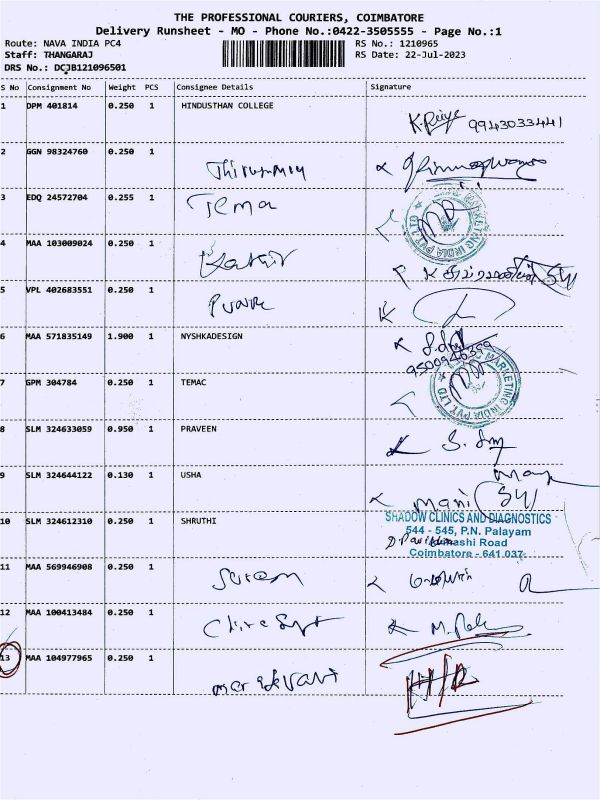 THE PROFESSIONAL COURIERS, COIMBATORE
Delivery Runsheet - MO - Phone No.:0422-3505555 - Page No.:1
Route: NAVA INDIA PC4 RS No.: 1210965
Staff: THANGARAJ RS Date: 22-Jul-2023
DRS No.: DCJB121096501
S No Consignment No Weight PCS Consignee Details Signature
1 DPM 401814 0.250 1 HINDUSTHAN COLLEGE
9943033441
2 GGN 98324760 0.250 1
3 EDQ 24572704 0.255 1 Tema
MARKETING INDIA PVT LTD
4 MAA 103009024 0.250 1 Kathir
5 VPL 402683551 0.250 1
6 MAA 571835149 1.900 1 NYSHKADESIGN
9500946399
7 GPM 304784 0.250 1 TEMAC
MARKETING INDIA PVT LTD
8 SLM 324633059 0.950 1 PRAVEEN
9 SLM 324644122 0.130 1 USHA
Mani
10 SLM 324612310 0.250 1 SHRUTHI
SHADOW CLINICS AND DIAGNOSTICS
544 - 545, P.N. Palayam
Road
Coimbatore - 641 037
11 MAA 569946908 0.250 1
12 MAA 100413484 0.250 1
13 MAA 104977965 0.250 1